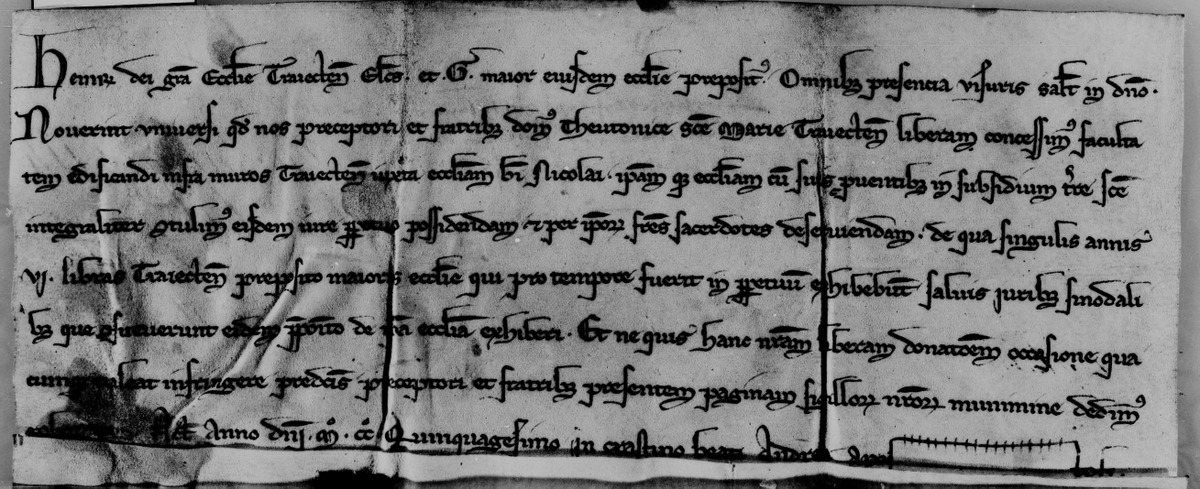 Henric̄ dei gr̄a Ecclīe Traiecten̄ Elc̄s. et .G. maior eiusdem ecclīe p̄reposit᷒. Omnib; presencia visuris salt̄ in dn̄o.
Noverint vniversi qd̄ nos preceptori et fratrib; dom᷒ Theutonice sc̄e Marie Traiecten̄ liberam concessim᷒ faculta
tem edificandi infra muros Traiecten̄ iuxta eccl̄iam bī Nicolai. ip̄am q; eccl̄iam cū suis ꝓventib; in subsidium t̄re sc̄e
integraliter ꝯtulim᷒ eisdem iure ꝑpetuo possidendam et per ip̄oꝝ fr̄es sacerdotes deserviendam. de qua singulis annis
vj. libras Traiecten̄ preposito maioris ecclīe qui pro tempore fuerit in ꝑpetuū exhibebūt salvis juribus sinodali
b; que ꝯsueverunt eidem p̄posito de ip̄a eccl̄ia exhiberi. Et ne quis hanc nr̄am liberam donatōem occasione qua
cumq; valeat infringere predc̄is preceptori et fratrib; presentem paginam sigilloꝝ nr̄oꝝ munimine dedim᷒
Act̄ Anno dn̄i .m̊. cc̊. Quinquagesimo in crastino beati Andree